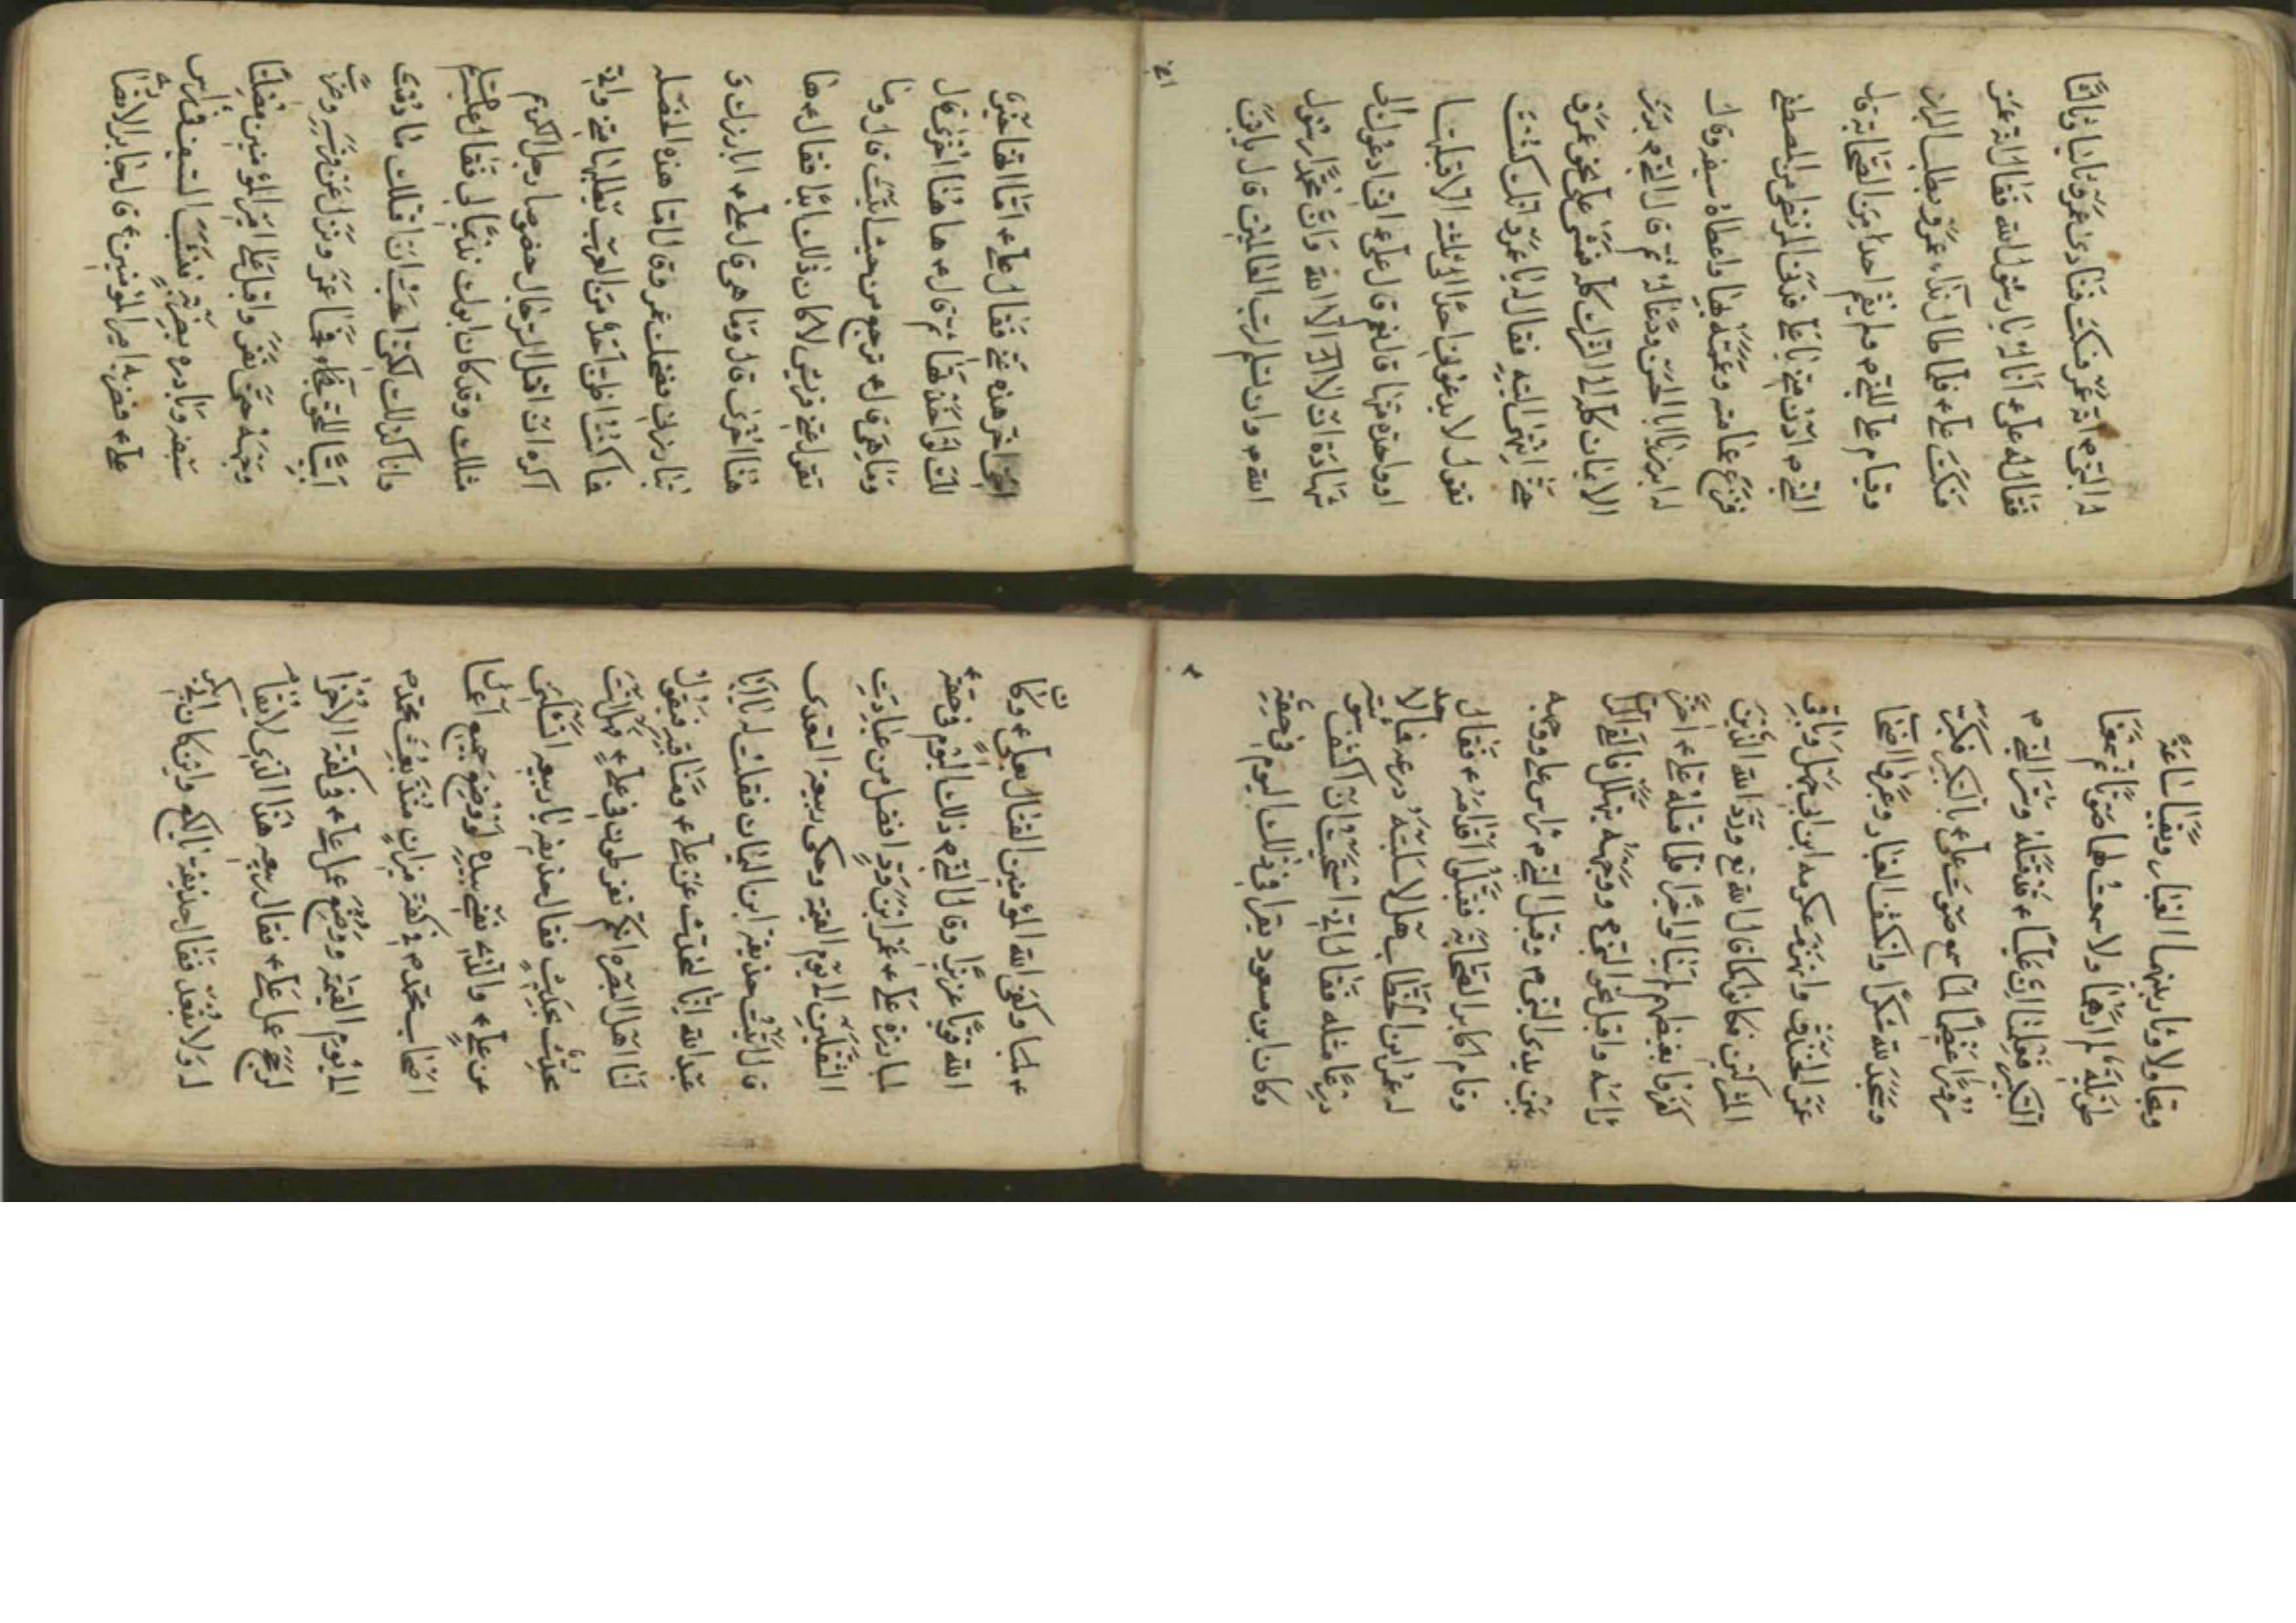 له النبي م انه عمرو فسكت فنادى عمرو ثانيا وثالثا
فقال له علي ع انا له يا رسول الله فقال له انه عمرو
فسكت علي ع فلما طال نداء عمرو بطلب البراز
وقيام علي للنبي م ولم يقم احد من الصحابة قال
النبي م ادن مني يا علي فدنى المرتضى من المصطفى
فنزع عمامته وعممه بها واعطاه سيفه وقال
له ابرز يا ابا الحسن ودعا له ثم قال النبي م برز
الايمان كله الى الشرك كله فمشى علي نحو عمرو
حتى انتهى اليه فقال له يا عمرو انك كنت
تقول لا يدعوني احدا الى ثلثة الا قبلتها
او واحدة منها قال نعم قال علي ع اني ادعوك الى
شهادة ان لا اله الا الله وان محمدا رسول
الله م وان تسلم لرب العالمين قال يا بن
اخي
اخي اخر هذه عني فقال علي ع اما انها خير
لك لو اخذتها ثم قال ع ها هنا اخرى قال
وما هي قال ع ترجع من حيث اتيت قال وما
تقول عني قريش لا كان ذلك ابدا فقال ع ها
هنا اخرى قال وما هي قال علي ع ابارزك و
تبارزني فضحك عمرو قال اما هذه الخصلة
ما كنت اظن احدا من العرب يطلبها مني واني
اكره ان اقتل الرجال خصوصا رجل الكريم
مثلك وقد كان ابوك نديما لي فقال علي
وانا كذلك لكني احب ان اقتلك ما دمت
ابيا للحق عمرو ونزل عن فرسه وضرب
وجهه حتى نفر واقبل على امير المؤمنين مصلتا
سيفه وبادره بضربة فنشب السيف في ترس
علي ع فضربه امير المؤمنين ع قال جابر الانصاري
وتجاولا وثار بينهما الغبار وبقيا ساعة
طويلة لم ارهما ولا سمعت لهما صوتا ثم سمعنا
التكبير فعلمنا ان عليا ع قد قتله وسر النبي م
سرورا عظيما لما سمع صوت علي ع بالتكبير فكبر
وسجد لله شكرا وانكشف الغبار وعبروا اصحاب
عمرو الخندق وانهزم عكرمه ابن ابي جهل وباقي
المشركين فكانوا كما قال الله تع ورد الله الذين
كفروا بغيظهم لم ينالوا خيرا فلما قتله علي ع احتز
راسه واقبل نحو النبي م ووجهه يتهلل فالقى الراس
بين يدي النبي م وقبل النبي م راس علي ووجهه
وقام اكابر الصحابة فقبلوا اقدامه ع فقال
له عمر ابن الخطاب هلا سلبته درعه فما لاحد
درعا مثله فقال اني استحييت ان اكشف سوئته
وكان ابن مسعود يقرا في ذلك اليوم في حقه
ع وكفى الله المؤمنين القتال بعلي ع وكان
الله قويا عزيزا وقال النبي م ذلك اليوم في حقه ع
لمبارزة علي ع عمرو ابن ود افضل من عبادت
الثقلين الى يوم القيمة وحكى ربيعة السعدي
قال اتيت حذيفة ابن اليمان فقلت له يا ابا
عبد الله انا لنحدث عن علي ع ومناقبه فيقول
لنا اهل البصره انكم تفرطون في علي ع فهل انت
محدث بحديث فقال حذيفه يا ربيعه اتسئلني
عن علي ع والذي نفسي بيده لو وضع جميع اعمال
اصحاب محمد م في كفة ميزان منذ بعث محمد م
الى يوم القيمة ووضع عمل علي ع في كفة الاخرى
لرجح عمل علي ع فقال ربيعه هذا الذي لا يقام
له ولا يقعد فقال حذيفة يا لكع واين كان ابي بكر